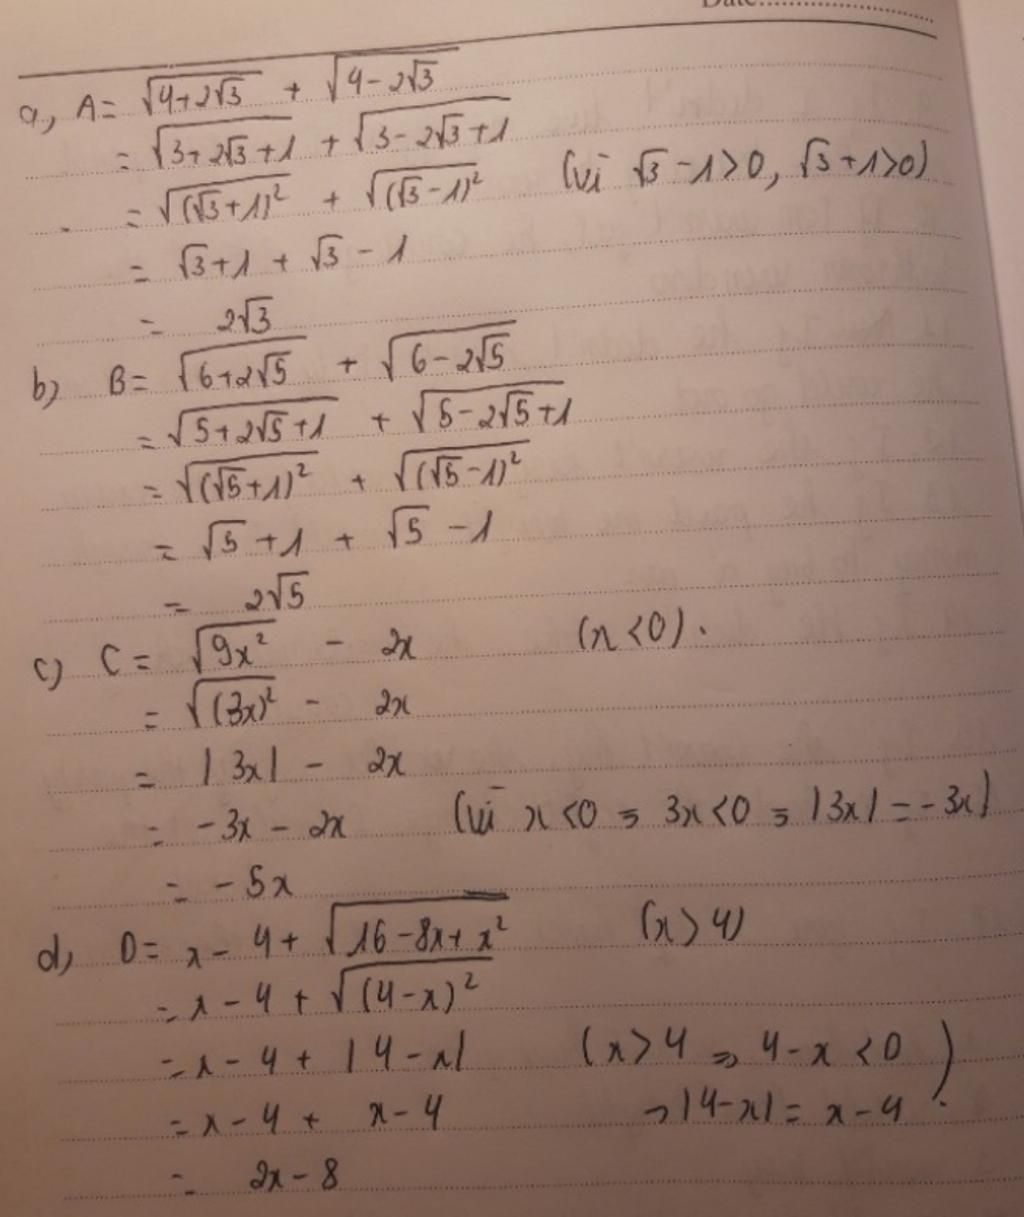 Date
a, A = √(4+2√3) + √(4-2√3)
= √(3+2√3+1) + √(3-2√3+1)
= √((√3+1)²) + √((√3-1)²) (vì √3-1>0, √3+1>0)
= √3+1 + √3-1
= 2√3
b) B = √(6+2√5) + √(6-2√5)
= √(5+2√5+1) + √(5-2√5+1)
= √((√5+1)²) + √((√5-1)²)
= √5+1 + √5-1
= 2√5
c) C = √(9x²) - 2x (x<0).
= √((3x)²) - 2x
= |3x| - 2x
= -3x - 2x (vì x<0 ⇒ 3x<0 ⇒ |3x| = -3x)
= -5x
d, D = x-4+√(16-8x+x²) (x>4)
= x-4+√((4-x)²)
= x-4+|4-x| (x>4 ⇒ 4-x<0
= x-4+ x-4 ⇒ |4-x| = x-4).
= 2x-8